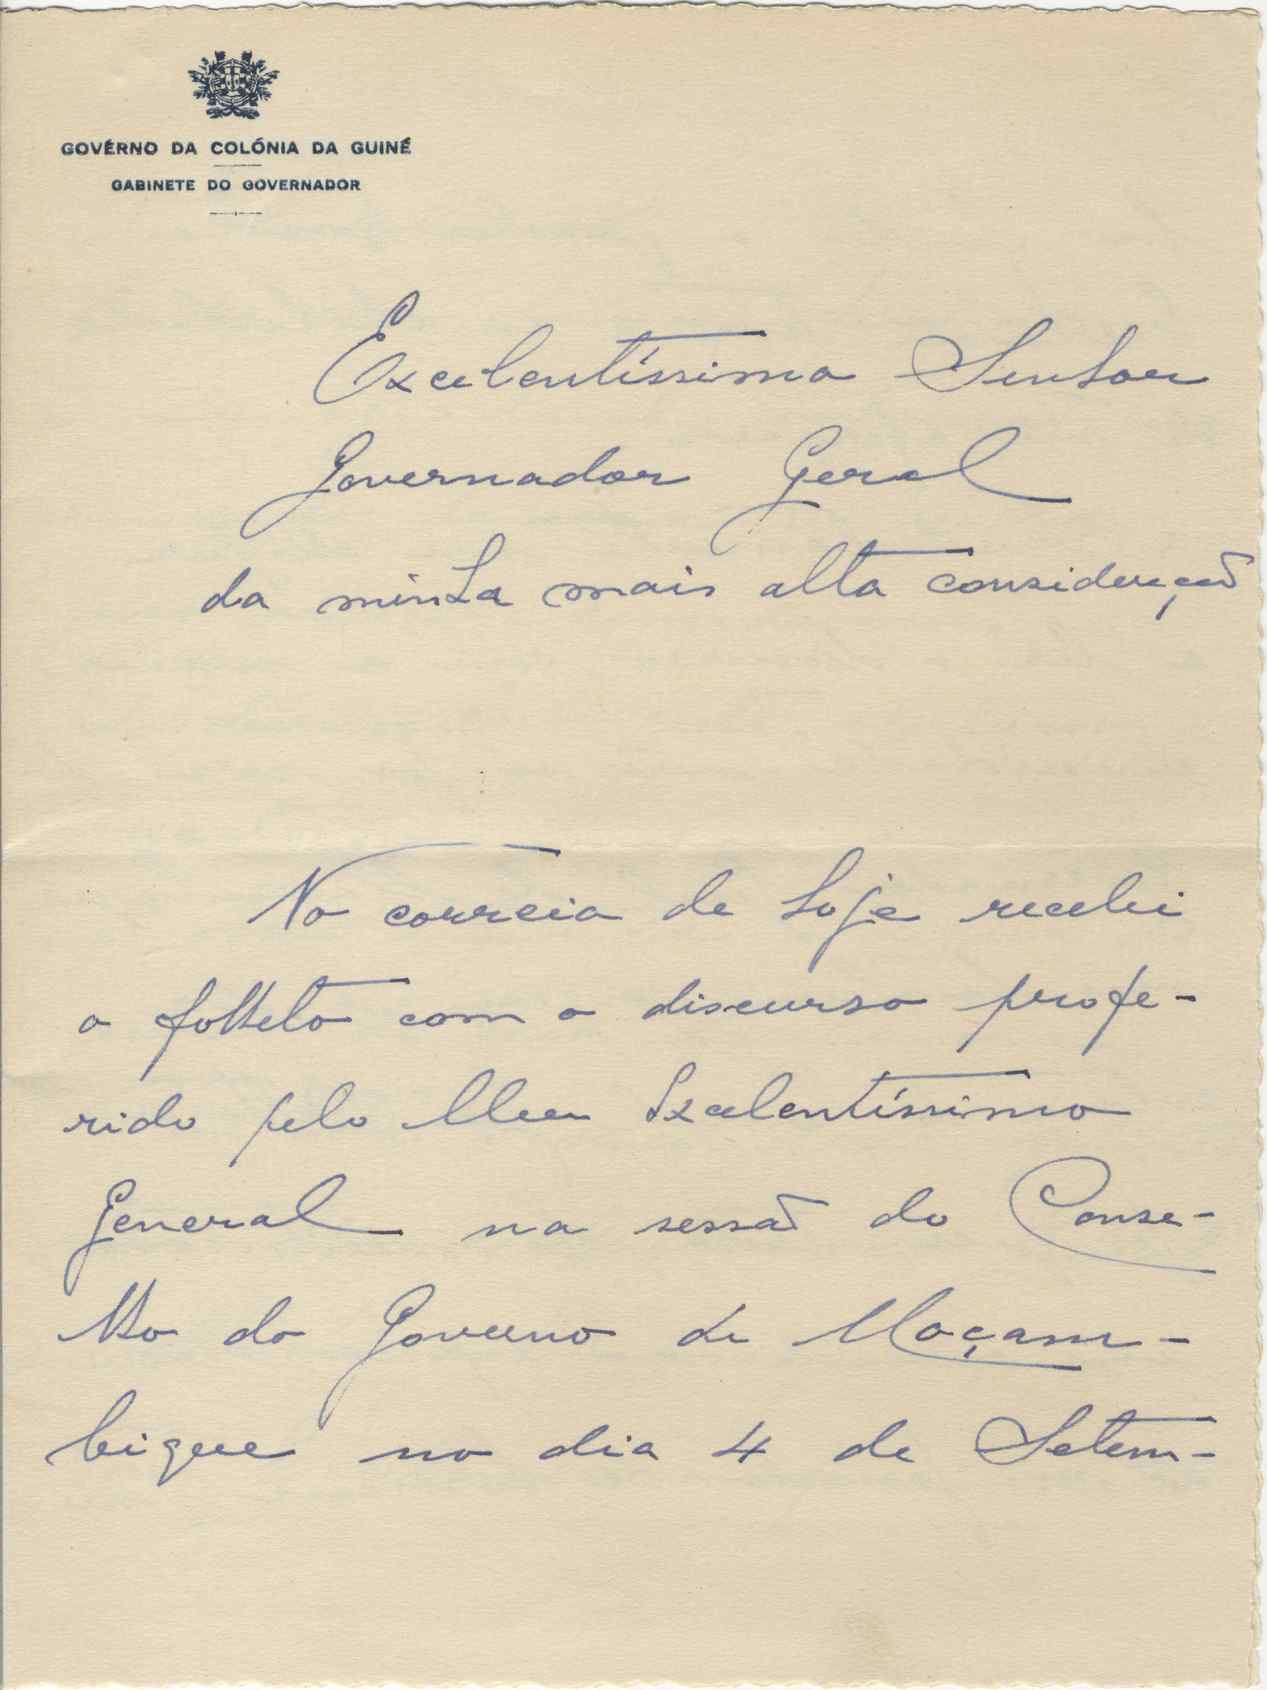 GOVÊRNO DA COLÓNIA DA GUINÉ
GABINETE DO GOVERNADOR
Excelentíssimo Senhor
Governador Geral
da minha mais alta consideração
No correio de hoje recebi
o folheto com o discurso profe-
rido pelo Meu Excelentíssimo
General na sessão do Conse-
lho do Governo de Moçam-
bique no dia 4 de Setem-